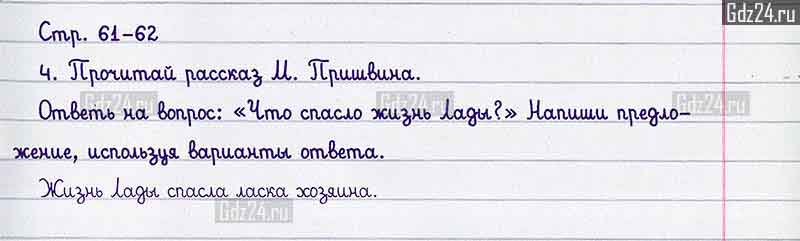 Gdz24.ru
Стр. 61-62
4. Прочитай рассказ М. Пришвина.
Gdz24.ru Gdz24.ru Gdz24.ru
Ответь на вопрос: «Что спасло жизнь Лады?» Напиши предло-
жение, используя варианты ответа.
Жизнь Лады спасла ласка хозяина.
Gdz24.ru